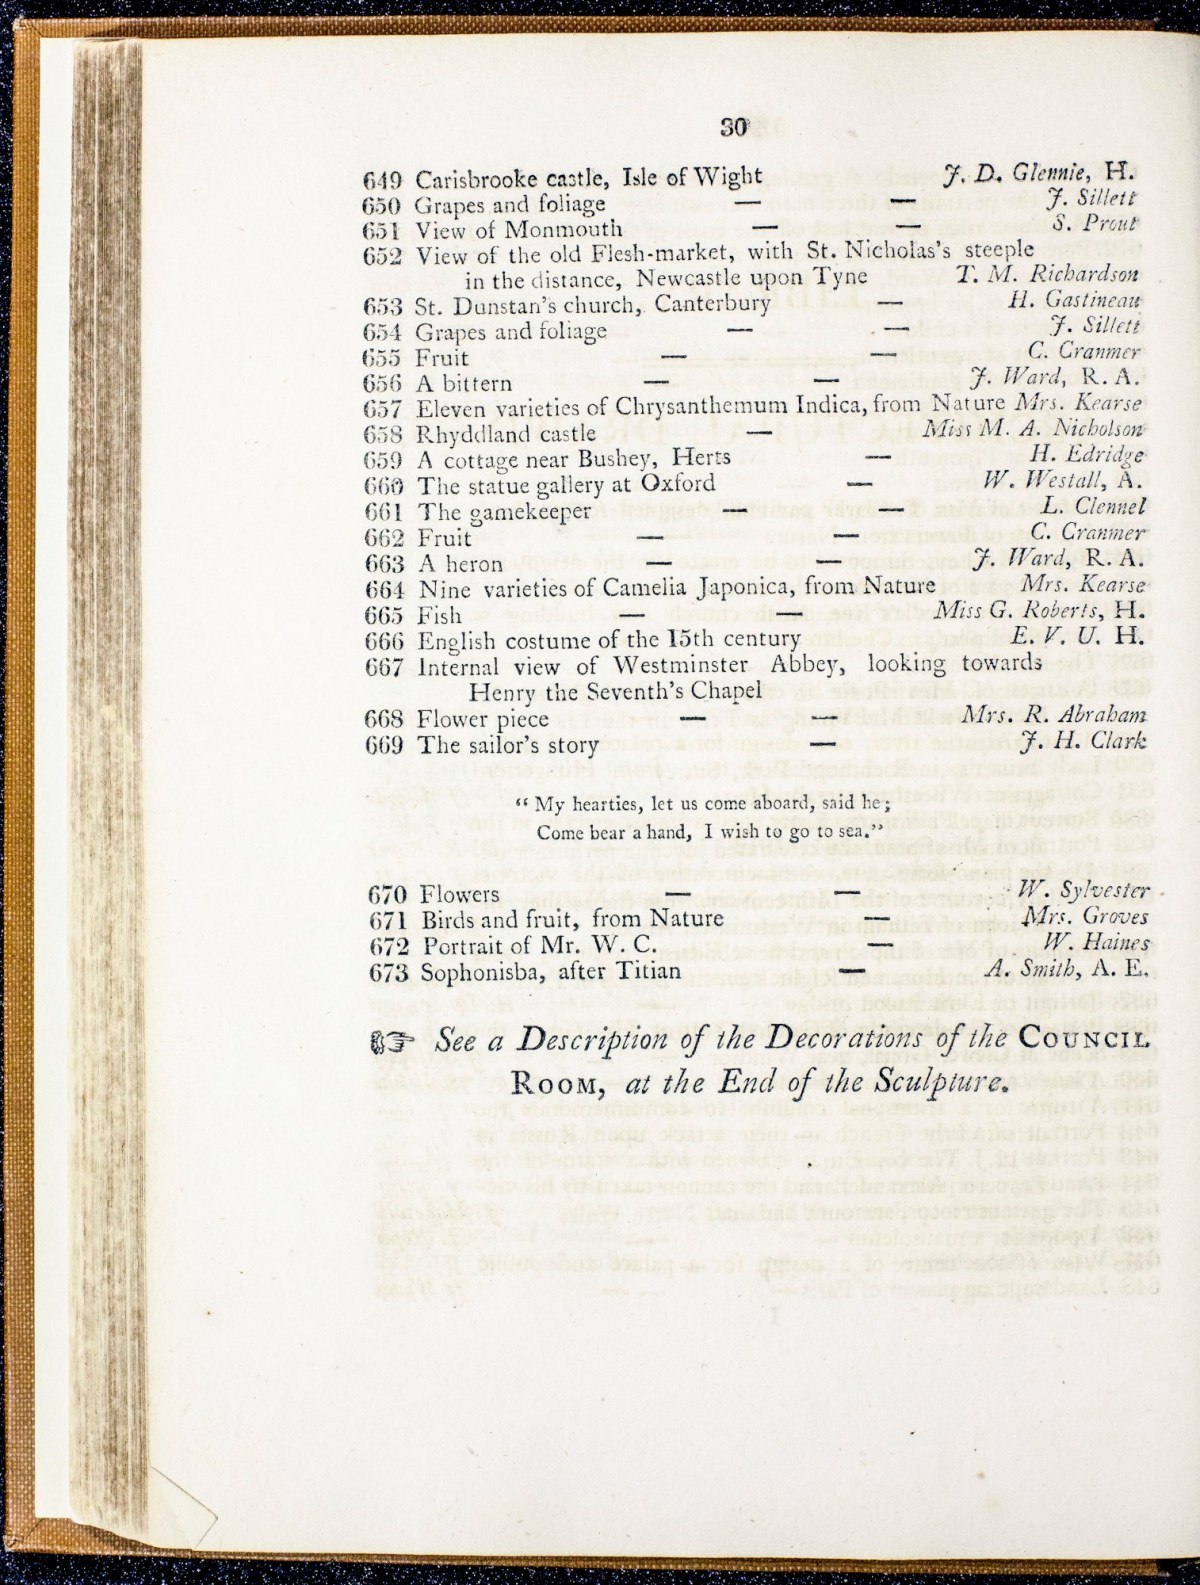 30
649 Carisbrooke castle, Isle of Wight J. D. Glennie, H.
650 Grapes and foliage — — J. Sillett
651 View of Monmouth — — S. Prout
652 View of the old Flesh-market, with St. Nicholas's steeple
in the distance, Newcastle upon Tyne T. M. Richardson
653 St. Dunstan's church, Canterbury — H. Gastineau
654 Grapes and foliage — — J. Sillett
655 Fruit — — C. Cranmer
656 A bittern — — J. Ward, R. A.
657 Eleven varieties of Chrysanthemum Indica, from Nature Mrs. Kearse
658 Rhyddland castle — Miss M. A. Nicholson
659 A cottage near Bushey, Herts — H. Edridge
660 The statue gallery at Oxford — W. Westall, A.
661 The gamekeeper — — L. Clennel
662 Fruit — — C. Cranmer
663 A heron — — J. Ward, R. A.
664 Nine varieties of Camelia Japonica, from Nature Mrs. Kearse
665 Fish — — Miss G. Roberts, H.
666 English costume of the 15th century E. V. U. H.
667 Internal view of Westminster Abbey, looking towards
Henry the Seventh's Chapel
668 Flower piece — — Mrs. R. Abraham
669 The sailor's story — J. H. Clark
“ My hearties, let us come aboard, said he;
Come bear a hand, I wish to go to sea.”
670 Flowers — — W. Sylvester
671 Birds and fruit, from Nature — Mrs. Groves
672 Portrait of Mr. W. C. — W. Haines
673 Sophonisba, after Titian — A. Smith, A. E.
☞ See a Description of the Decorations of the COUNCIL
ROOM, at the End of the Sculpture.